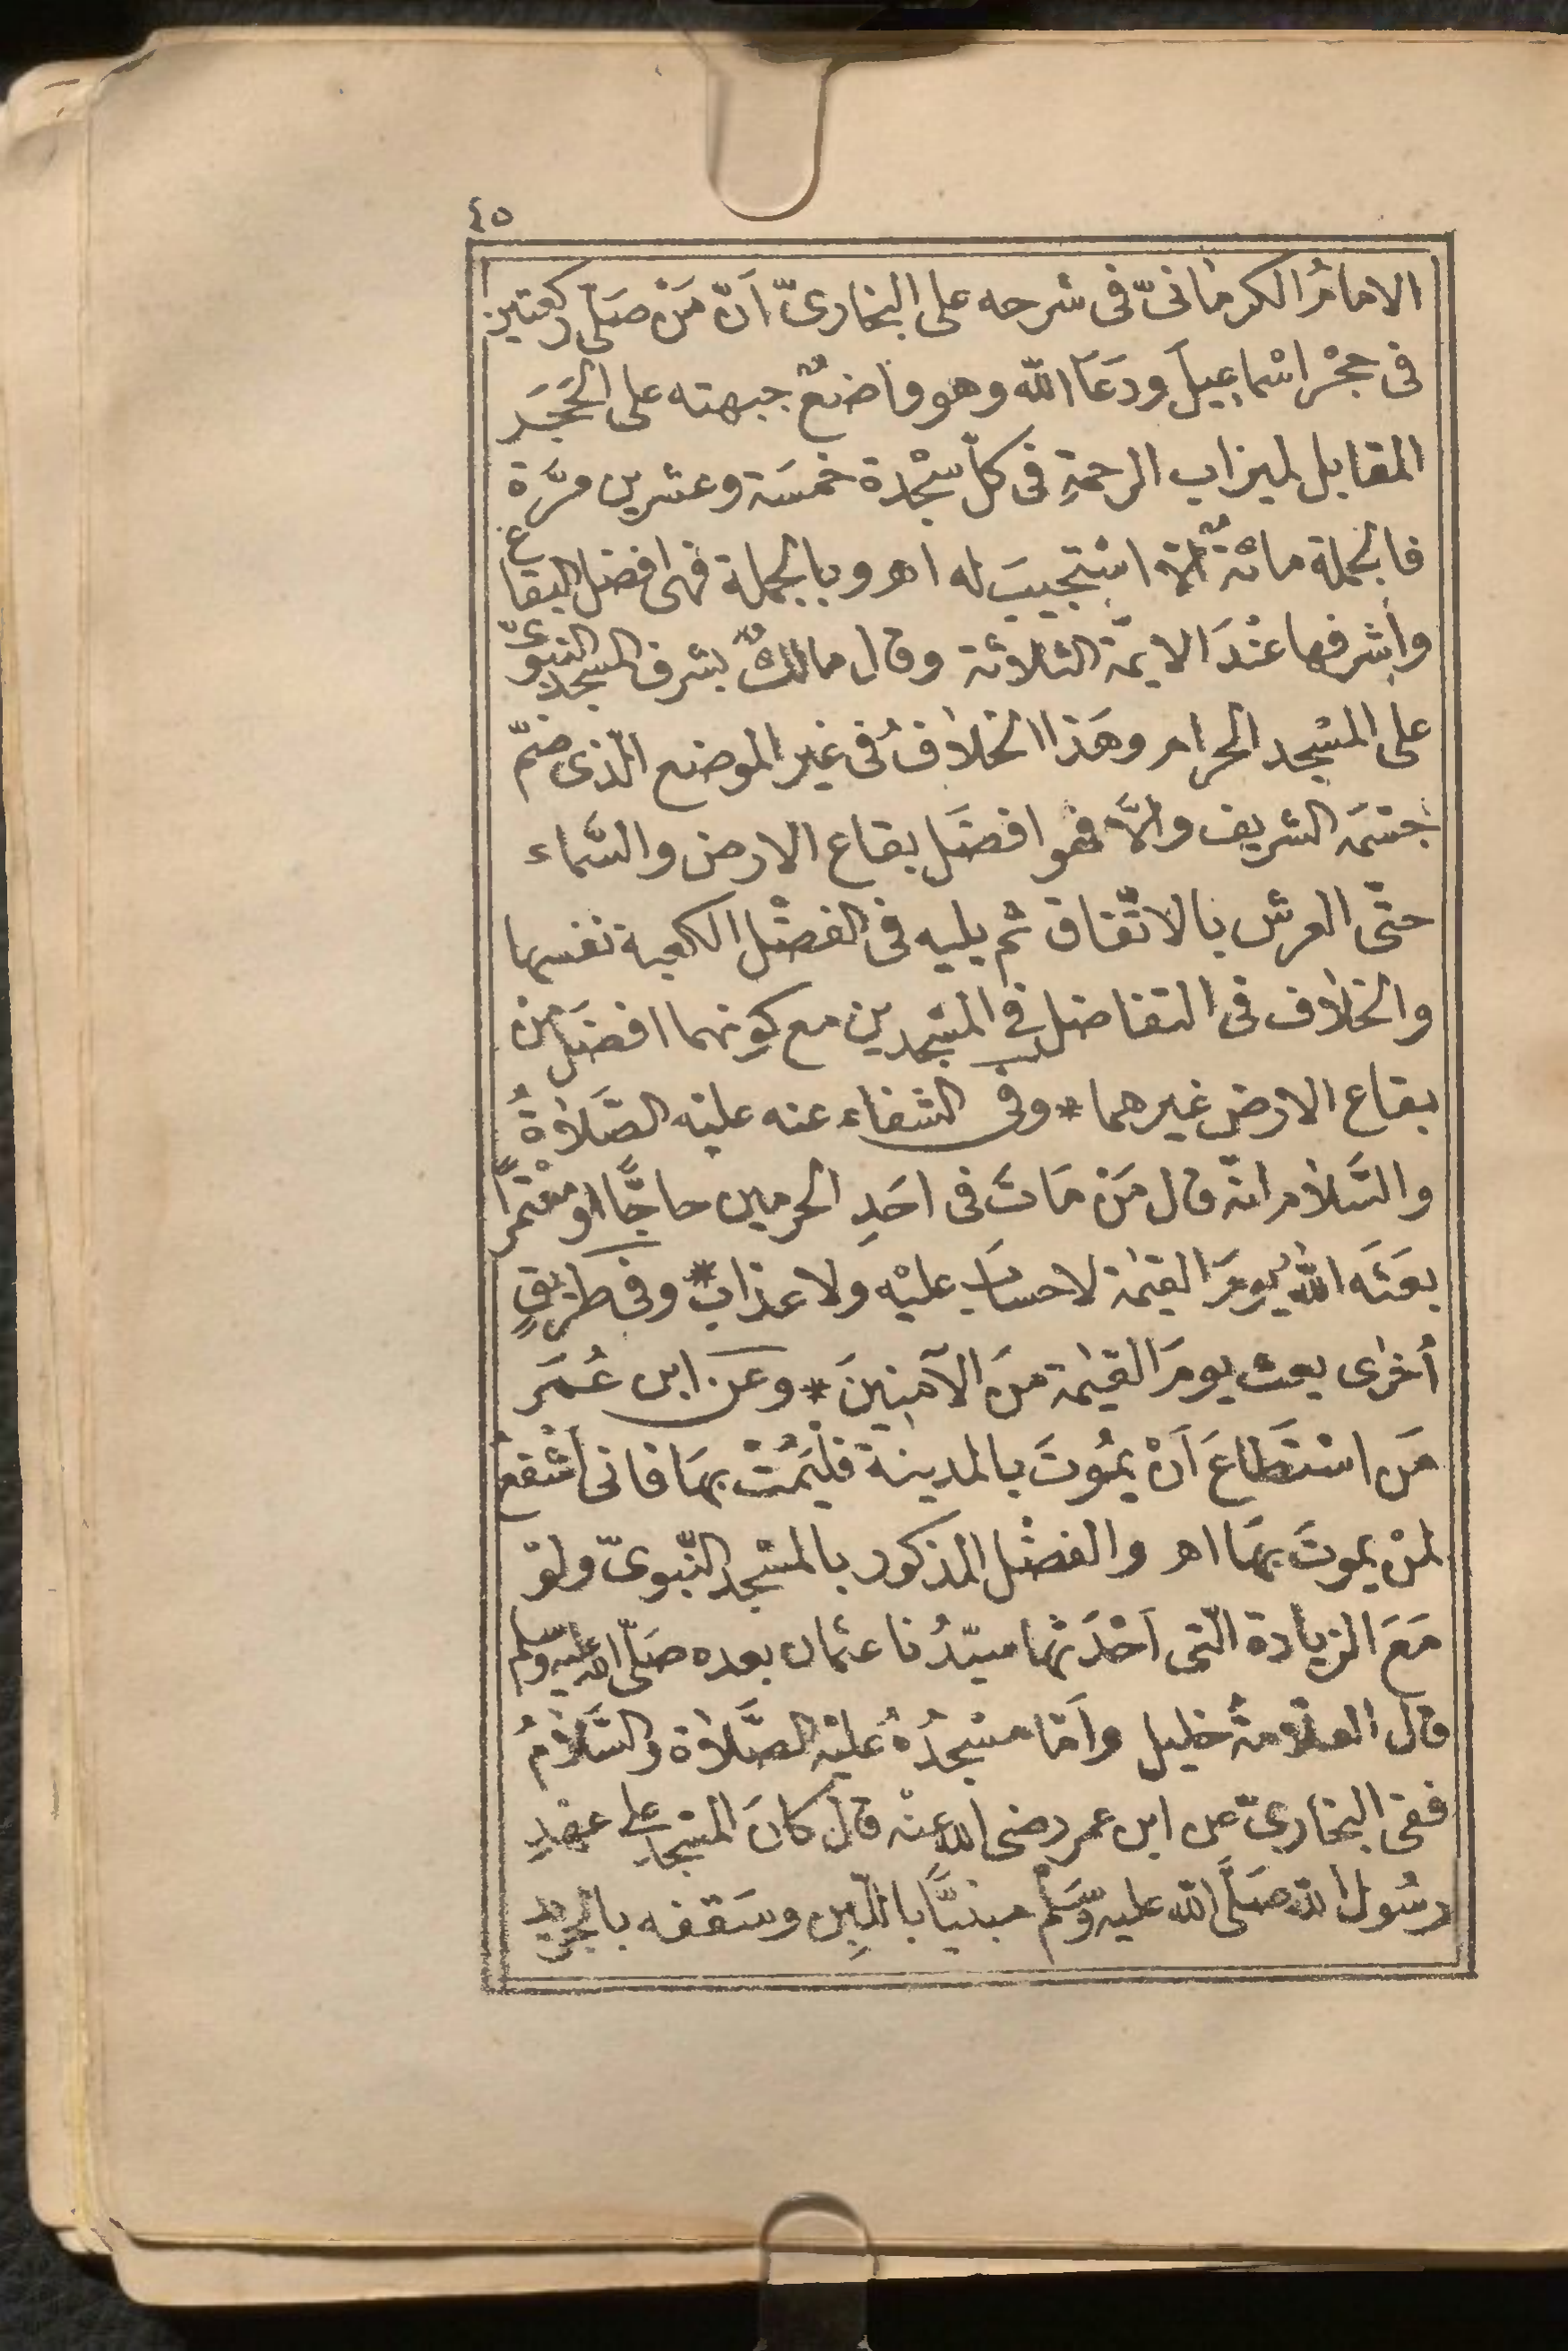 ٤٥
الامامُ الكرمانىّ فى شرحه على البخارىّ اَنّ مَنْ صَلّى ركعتين
فى حِجْر اسْماعِيلَ ودَعَا الله وهو وَاضعٌ جبهته على الحَجَر
المقابل لميزاب الرحمةِ فى كلّ سَجْدة خمسَة وعشرين مرَّة
فالجملة مائة مرّة اسْتجيبَ له اهـ وبالجملة فهى افضل البقاع
واشرفها عنْدَ الايمّة الثلاثة وقال مالكٌ بشرف المسجد النبوىّ
على المسْجد الحرام وهَذا الخلافُ فى غير الموضع الّذى ضمّ
جسْمَه الشريف والَّا فهو افضَل بقاع الارض والسّماء
حتّى العرش بالاتّفاق ثم يليه فى الفضْل الكعبة نفسها
والخلاف فى التفاضل فى المسْجدين مع كونهما افضَل من
بقاع الارض غيرهما * وفى الشفاء عنه عليْه الصَّلاةُ
والسَّلام انّه قال مَنْ مَاتَ فى احَدِ الحرمين حاجًّا او معْتمرًا
بعَثَه اللهُ يومَ القيٰمة لا حسابَ عليْه ولا عذابَ * وفى طريقٍ
أخرٰى يعث يومَ القيٰمة منَ الآمِنينَ * وعَن ابن عُمَر
مَن اسْتطَاعَ اَنْ يمُوتَ بالمدينة فلْيَمُتْ بهَا فانى اَشْفعُ
لمنْ يموتَ بهَا اهـ والفضْل المذكور بالمسْجد النّبوىّ ولوْ
مَعَ الزيادة الّتى اَحْدَثها سيّدُنا عثمان بعده صَلّى الله عليه وسلم
قال العلامة خليل وَاَمّا مسْجدُهُ عليْه الصَّلاة والسَّلامُ
ففى البخارىّ عن ابن عمر رضى الله عنْه قال كانَ المسْجد على عهْدِ
رسُول الله صَلَّى الله عليه وسَلَّم مبنيًّا باللَّبِن وسَقفه بالجريد